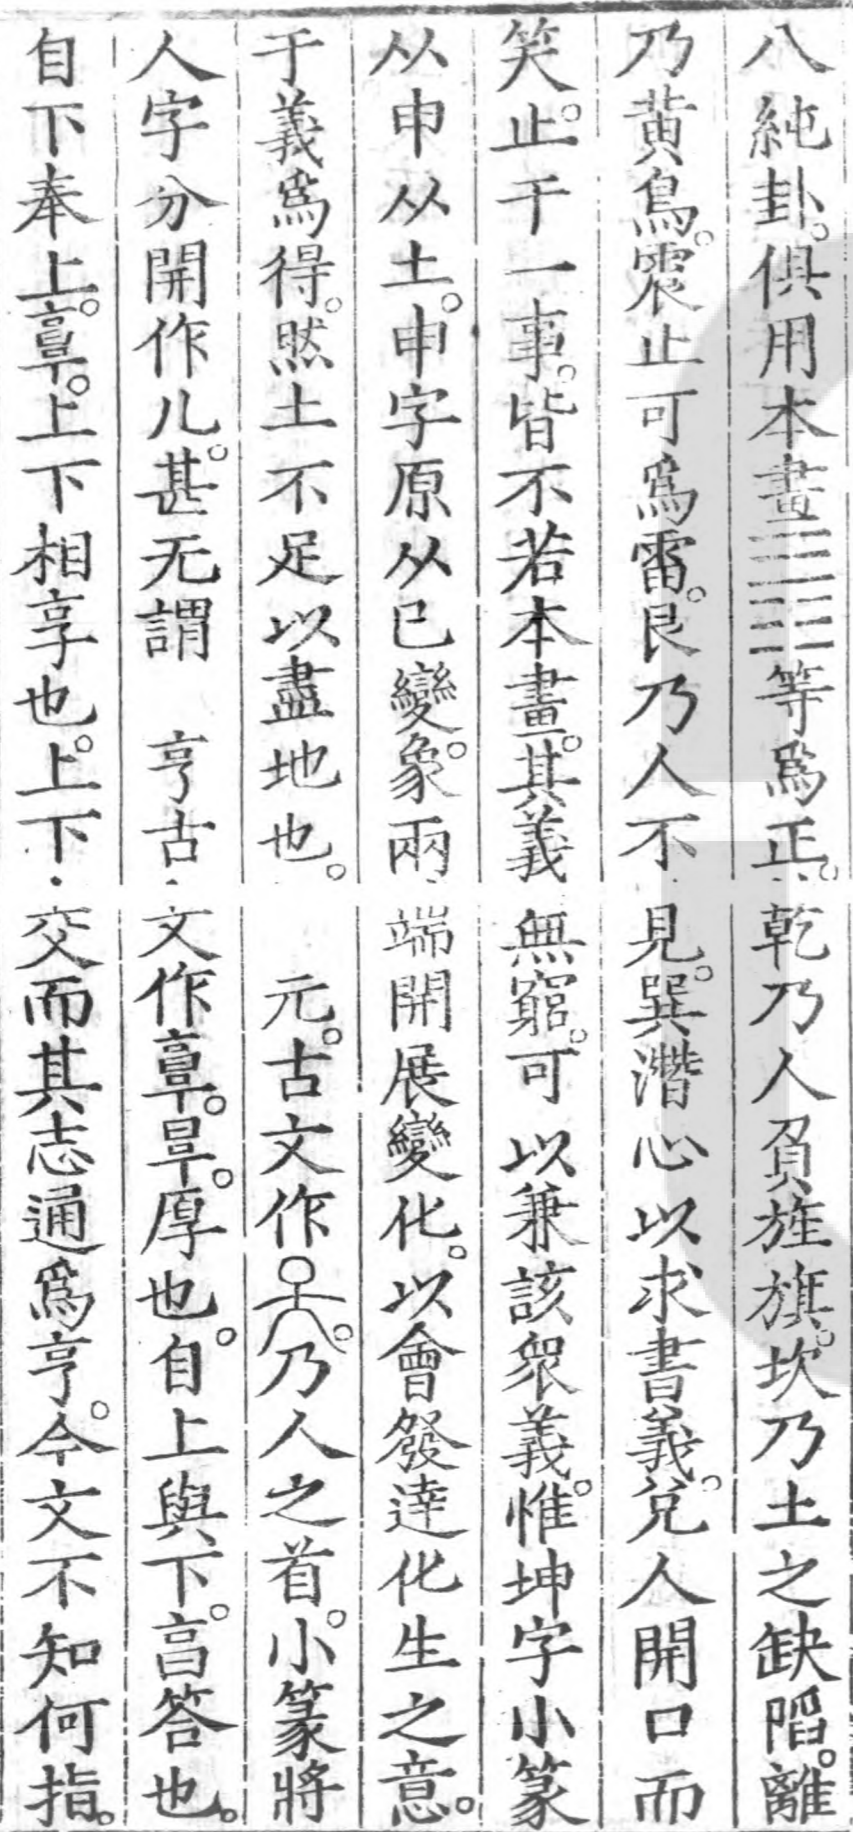 八純卦。俱用本畫☰☷等爲正。乾乃人負旌旗。坎乃土之缺陷。離
乃黃鳥。震止可爲雷。艮乃人不見。巽潛心以求書義。兌人開口而
笑。止于一事。皆不若本畫。其義無窮。可以兼該衆義。惟坤字小篆
从申从土。申字原从巳變象。兩端開展變化。以會發達化生之意。
于義爲得。然土不足以盡地也。 元。古文作。乃人之首。小篆將
人字分開作儿。甚无謂 亨古文作𦎫。𣆪。厚也。自上與下。亯答也。
自下奉上。𦎫。上下相享也。上下交而其志通爲亨。今文不知何指。